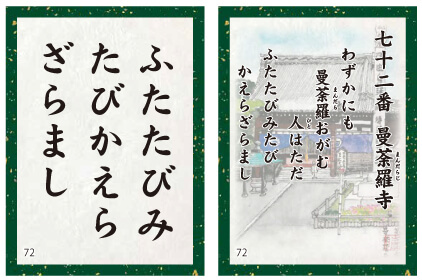 ふたたびみ
たびかえら
ざらまし
72
七十二番 曼荼羅寺
まんだらじ
わずかにも
曼荼羅おがむ
まんだら
人はただ
ひと
ふたたびみたび
かえらざらまし
72